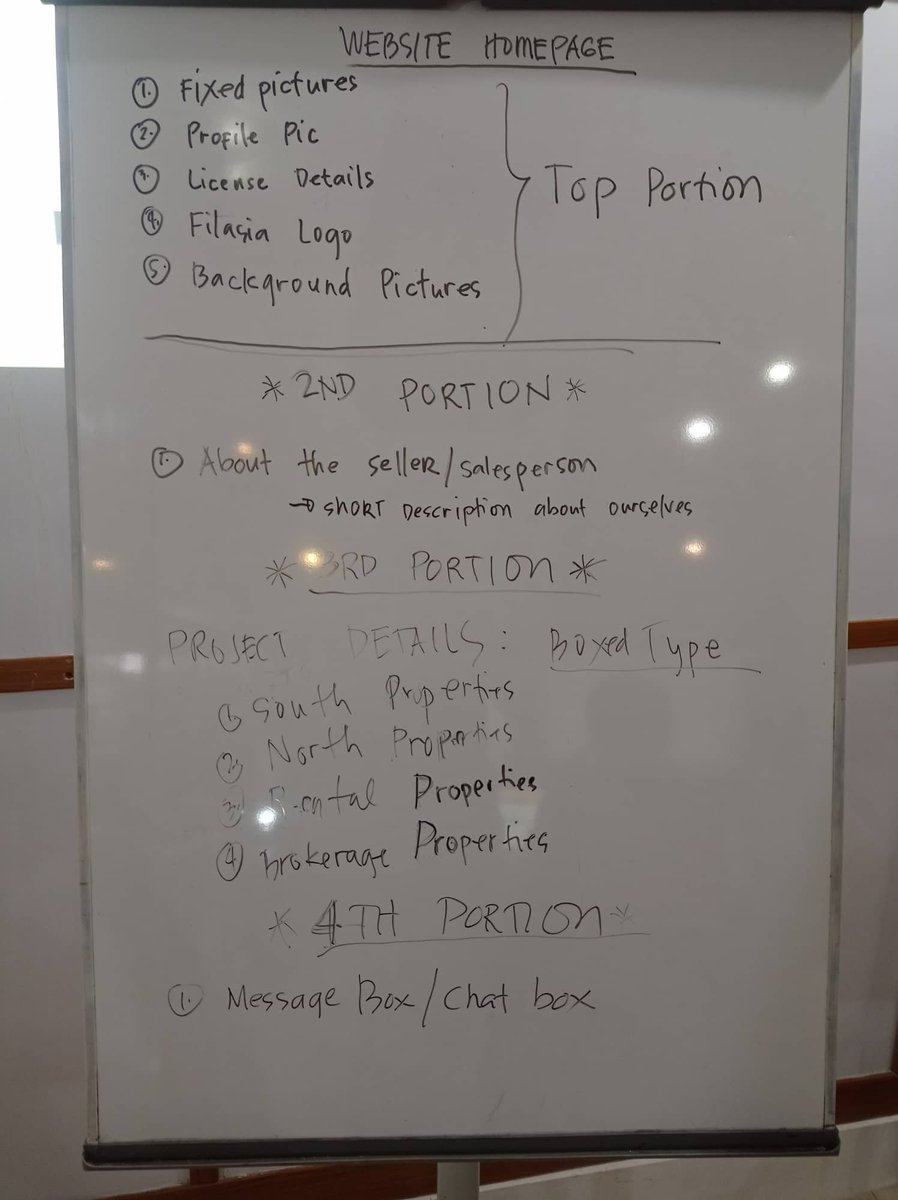 WEBSITE HOMEPAGE
1. Fixed pictures
2. Profile Pic
3. License Details
4. Filasia Logo
5. Background Pictures
Top Portion
* 2ND PORTION *
1. About the seller/salesperson
→ short Description about ourselves
* 3RD PORTION *
PROJECT DETAILS: Boxed Type
1) South Properties
2) North Properties
3) Rental Properties
4) Brokerage Properties
* 4TH PORTION *
1. Message Box/Chat box